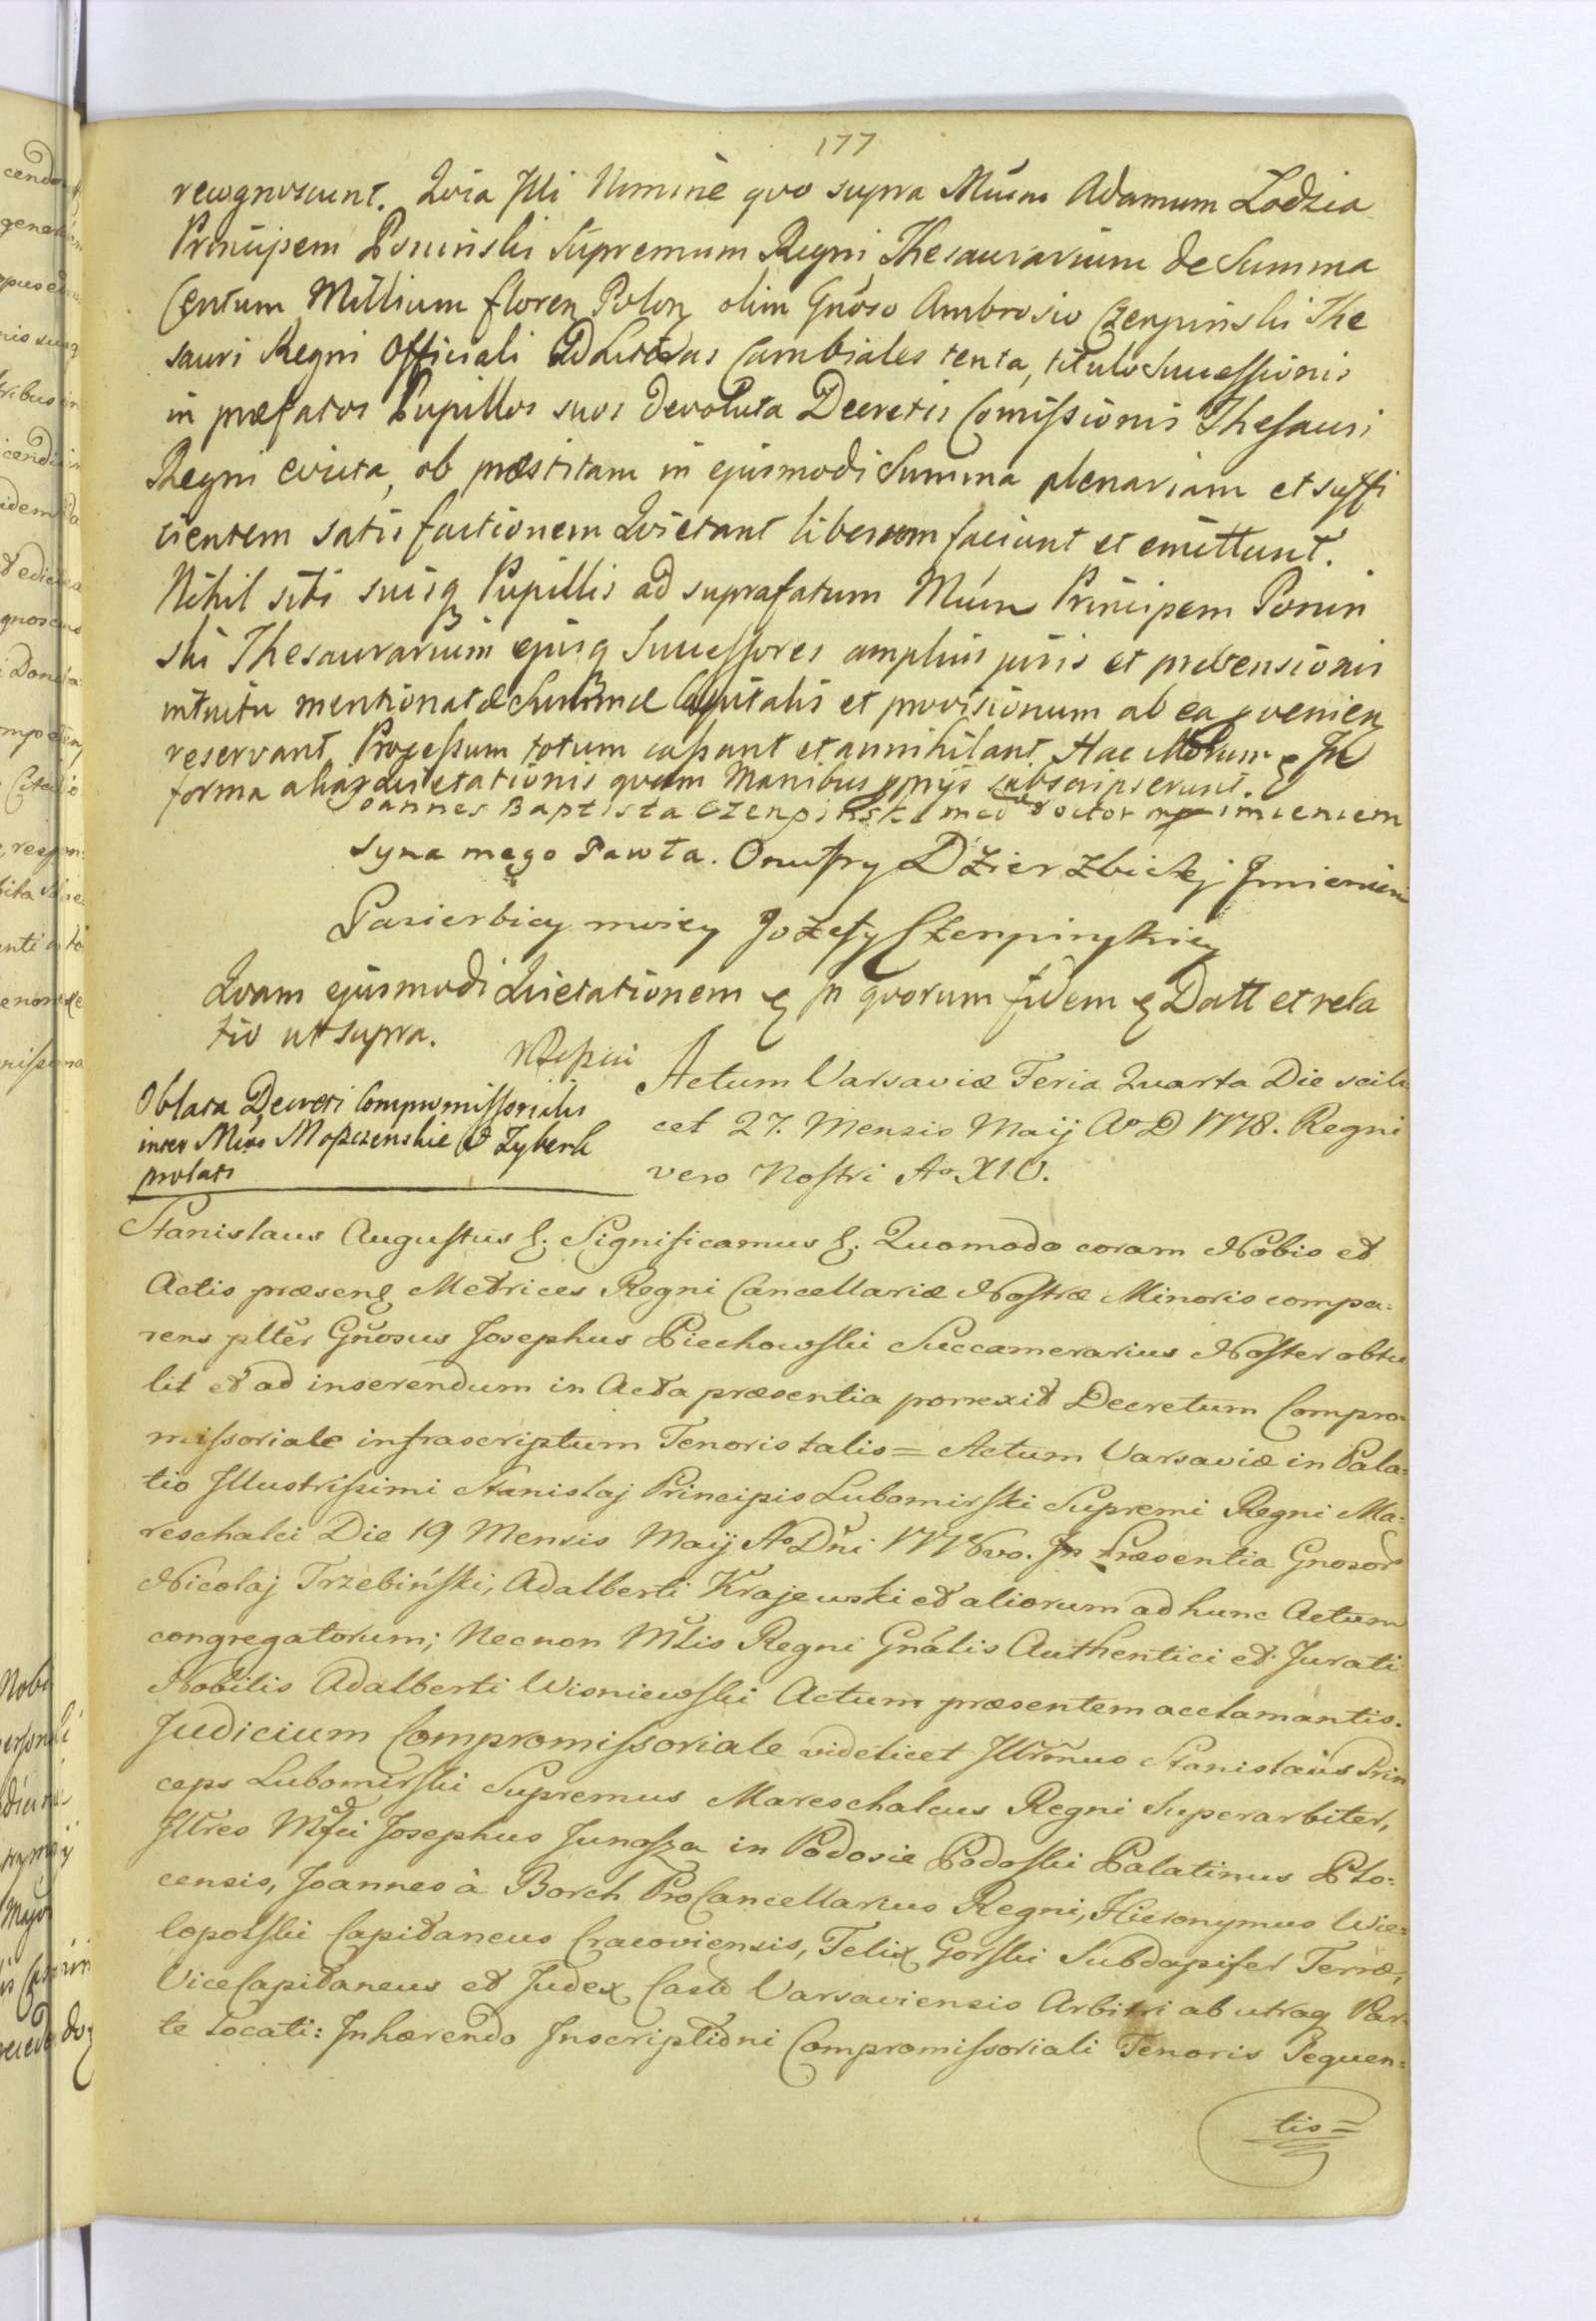 177
recognoscunt. Qvia Illi Nomine qvo supra Mcum Adamum Lodzia
Principem Poninski Supremum Regni Thesaurarium de Summa
Centum Millium floren Polon olim Gnoso Ambrosio Czenpinski The
sauri Regni Officiali ad Literas Cambiales tenta, titulo Successionis
in præfatos Pupillos suos devoluta Decretis Comissionis Thesauri
Regni evicta, ob præstitam in ejusmodi Summa plenariam et suffi
cientem satisfactionem Qvietant liberum faciunt et emittunt.
Nihil sibi suisq Pupillis ad suprafatum Mcum Principem Ponin
ski Thesaurarium ejusq Successores amplius juris et prætensionis
intuitu mentionatæ Summæ Capitalis et provisionum ab ea provenien
reservant, Processum totum cassant et annihilant. Hac
forma qvietationis qvam Manibus ppriis subscripserunt.
Joannes Baptista Czenpinski med doctor mp imieniem
syna mego Pawła. Onufry Dzierzbicki Jmieniem
Pasierbicy moiey Jozefy Czenpinskiey
Qvam ejusmodi Qvietationem & in qvorum fidem & Datt et rela
tio ut supra.
Oblata Decreti Compromissorialis
inter Mcos Moszczenskie & Zyberk
prolati
Actum Varsaviæ Feria Quarta Die scili
cet 27. Mensis Maij Ao D 1778. Regni
vero Nostri Ao XIV.
Stanislaus Augustus &. Significamus &. Quomodo coram Nobis et
Actis præsen Metrices Regni Cancellariæ Nostræ Minoris compa=
rens plter Gnosus Josephus Piechowski Succamerarius Noster obtu
lit et ad inserendum in Acta præsentia porrexit Decretum Compro=
missoriale infrascriptum Tenoris talis= Actum Varsaviæ in Pala=
tio Illustrissimi Stanislaj Principis Lubomirski Supremi Regni Ma=
reschalci Die 19 Mensis Maij Ao Dni 1778vo. In Præsentia Gnosor
Nicolaj Trzebiński, Adalberti Krajewski et aliorum ad hunc Actum
congregatorum; Necnon Mlis Regni Gnalis Authentici et Jurati
Nobilis Adalberti Wisniewski Actum præsentem acclamantis.
Judicium Compromissoriale videlicet Illrmus Stanislaus Prin
ceps Lubomirski Supremus Mareschalcus Regni Superarbiter,
Illres Mfci Josephus Junosza in Podosie Podoski Palatinus Plo=
censis, Joannes à Borch ProCancellarius Regni, Hieronymus Wie=
lopolski Capitaneus Cracoviensis, Felix Gorski Subdapifer Terræ,
ViceCapitaneus et Judex Cast Varsaviensis Arbitri ab utraq Par=
te Locati: Inhærendo Inscriptioni Compromissoriali Tenoris Sequen=
tis=